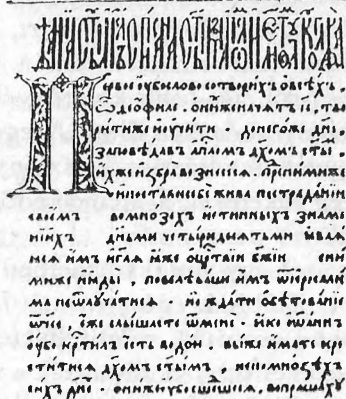 ервое ѹбо слово сотворихъ ѡ всѣхъ,
ѡ Ѳеофиле, ѡ нихже начатъ і҃с, тво
ритиже и ѹчити · донегоже дн҃ь,
заповѣдавъ ап҃лѡмъ дх҃омъ ст҃ымъ,
ихже избра вознесеся · пред нимиже
и постави себе жива по страдании
своемъ во мнозехъ истинныхъ знаме
ниихъ дньми четыридесятьми ꙗвлѧ
ѧсѧ имъ и гл҃ѧ ꙗже о цр҃ствіи бж҃іи с ни
миже и ꙗды, повелѣваше им ѿ іерѡсали
ма не ѿлучатисѧ · но ждати обѣтованіе
ѿч҃ее, еже слышасте ѿ мене · ꙗко іѡаннъ
ѹбо кр҃тилъ есть водою · вы же имате кре
ститисѧ дх҃омъ ст҃ымъ, не по мнозѣхъ
сихъ дн҃ехъ · они же ѹбо сшедшесѧ, вопрошаху